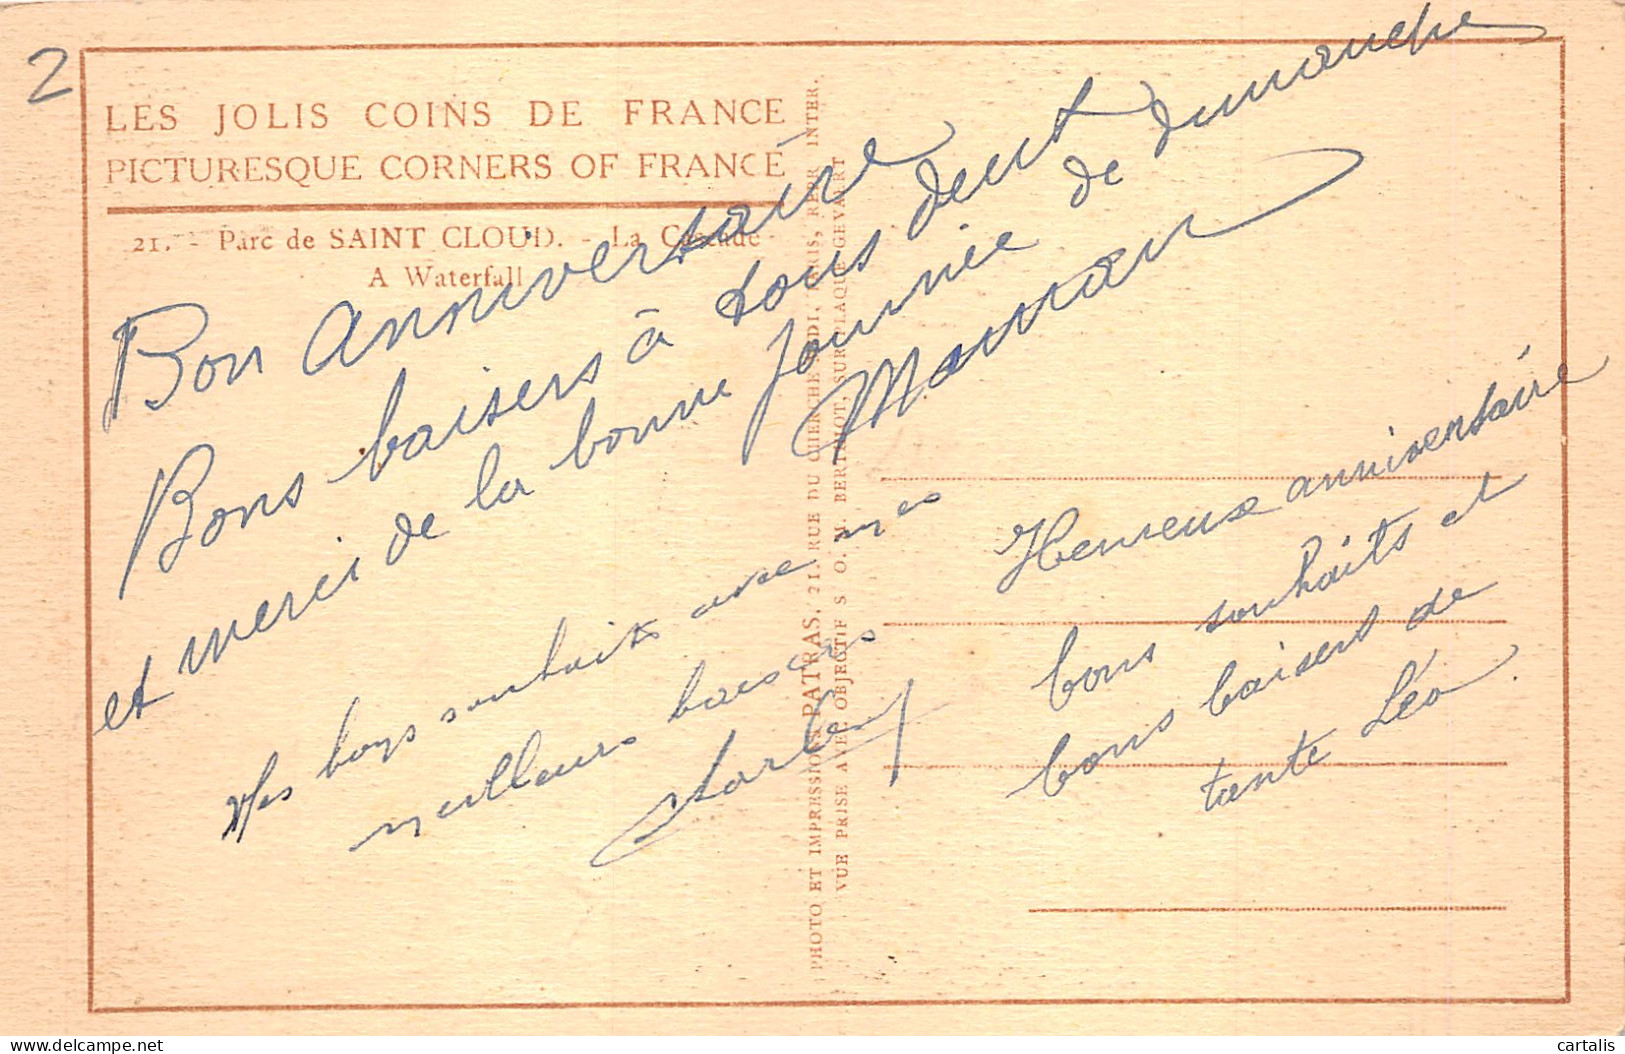 2
LES JOLIS COINS DE FRANCE
PICTURESQUE CORNERS OF FRANCE
21. - Parc de SAINT CLOUD. - La Cascade
A Waterfall
Bon anniversaire
Bons baisers à tous deux
et merci de la bonne journée de dimanche
Maman
Mes bons souhaits avec mes
meilleurs baisers
Heureux anniversaire
bons souhaits et
bons baisers de
tante Léo.
PHOTO ET IMPRESSIONS PATRAS, 21, RUE DU CHERCHE MIDI, PARIS, REPR INTER.
VUE PRISE AVEC OBJECTIF S O. M. BERTHIOT, SUR PLAQUE GEVAERT
cartalis
Delcampe.net